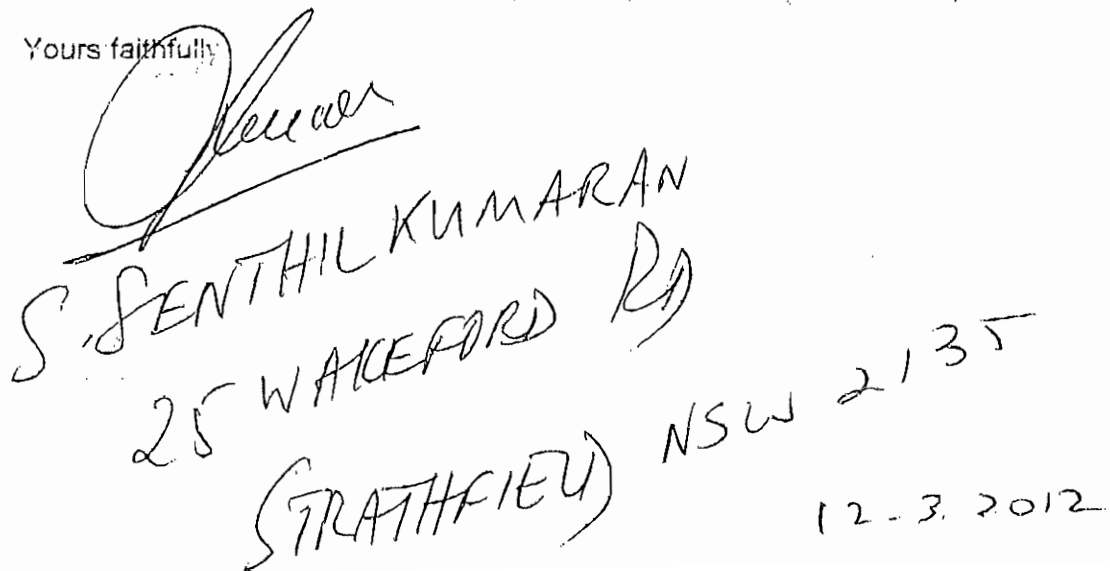 Yours faithfully
S. SENTHILKUMARAN
25 WAKEFORD RD
STRATHFIELD NSW 2135
12-3.2012